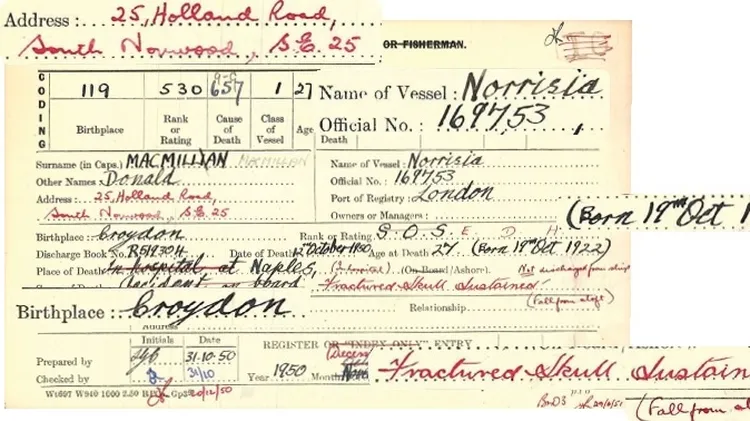 Address : 25, Holland Road,
South Norwood, S.E. 25
OR FISHERMAN.
CODING
119 530 657 1 27
Birthplace Rank or Rating Cause of Death Class of Vessel Age
Name of Vessel : Norrisia
Official No. : 169753
Death
Surname (in Caps.) MACMILLIAN MACMILLAN
Other Names : Donald
Address : 25, Holland Road,
South Norwood, S.E. 25
Name of Vessel : Norrisia
Official No. : 169753
Port of Registry : London
Owners or Managers :
(Born 19th Oct 1
Birthplace : Croydon
Rank or Rating S.O.S. E D H
Discharge Book No. R519304 Date of Death 12th October 1950 Age at Death 27 (Born 19th Oct 1922)
Place of Death in hospital at Naples, (On Board/Ashore). Not discharged from ship
Accident on board Fractured Skull Sustained
(Fall from aloft)
Birthplace : Croydon
Relationship
Address
Initials Date
REGISTER OR "INDEX ONLY" ENTRY
Prepared by 31·10·50
Checked by 31/10
Year 1950 Month
Fractured Skull Sustain
Wt697 W940 1000 2.50 Gp
20/12/50
(Fall from al